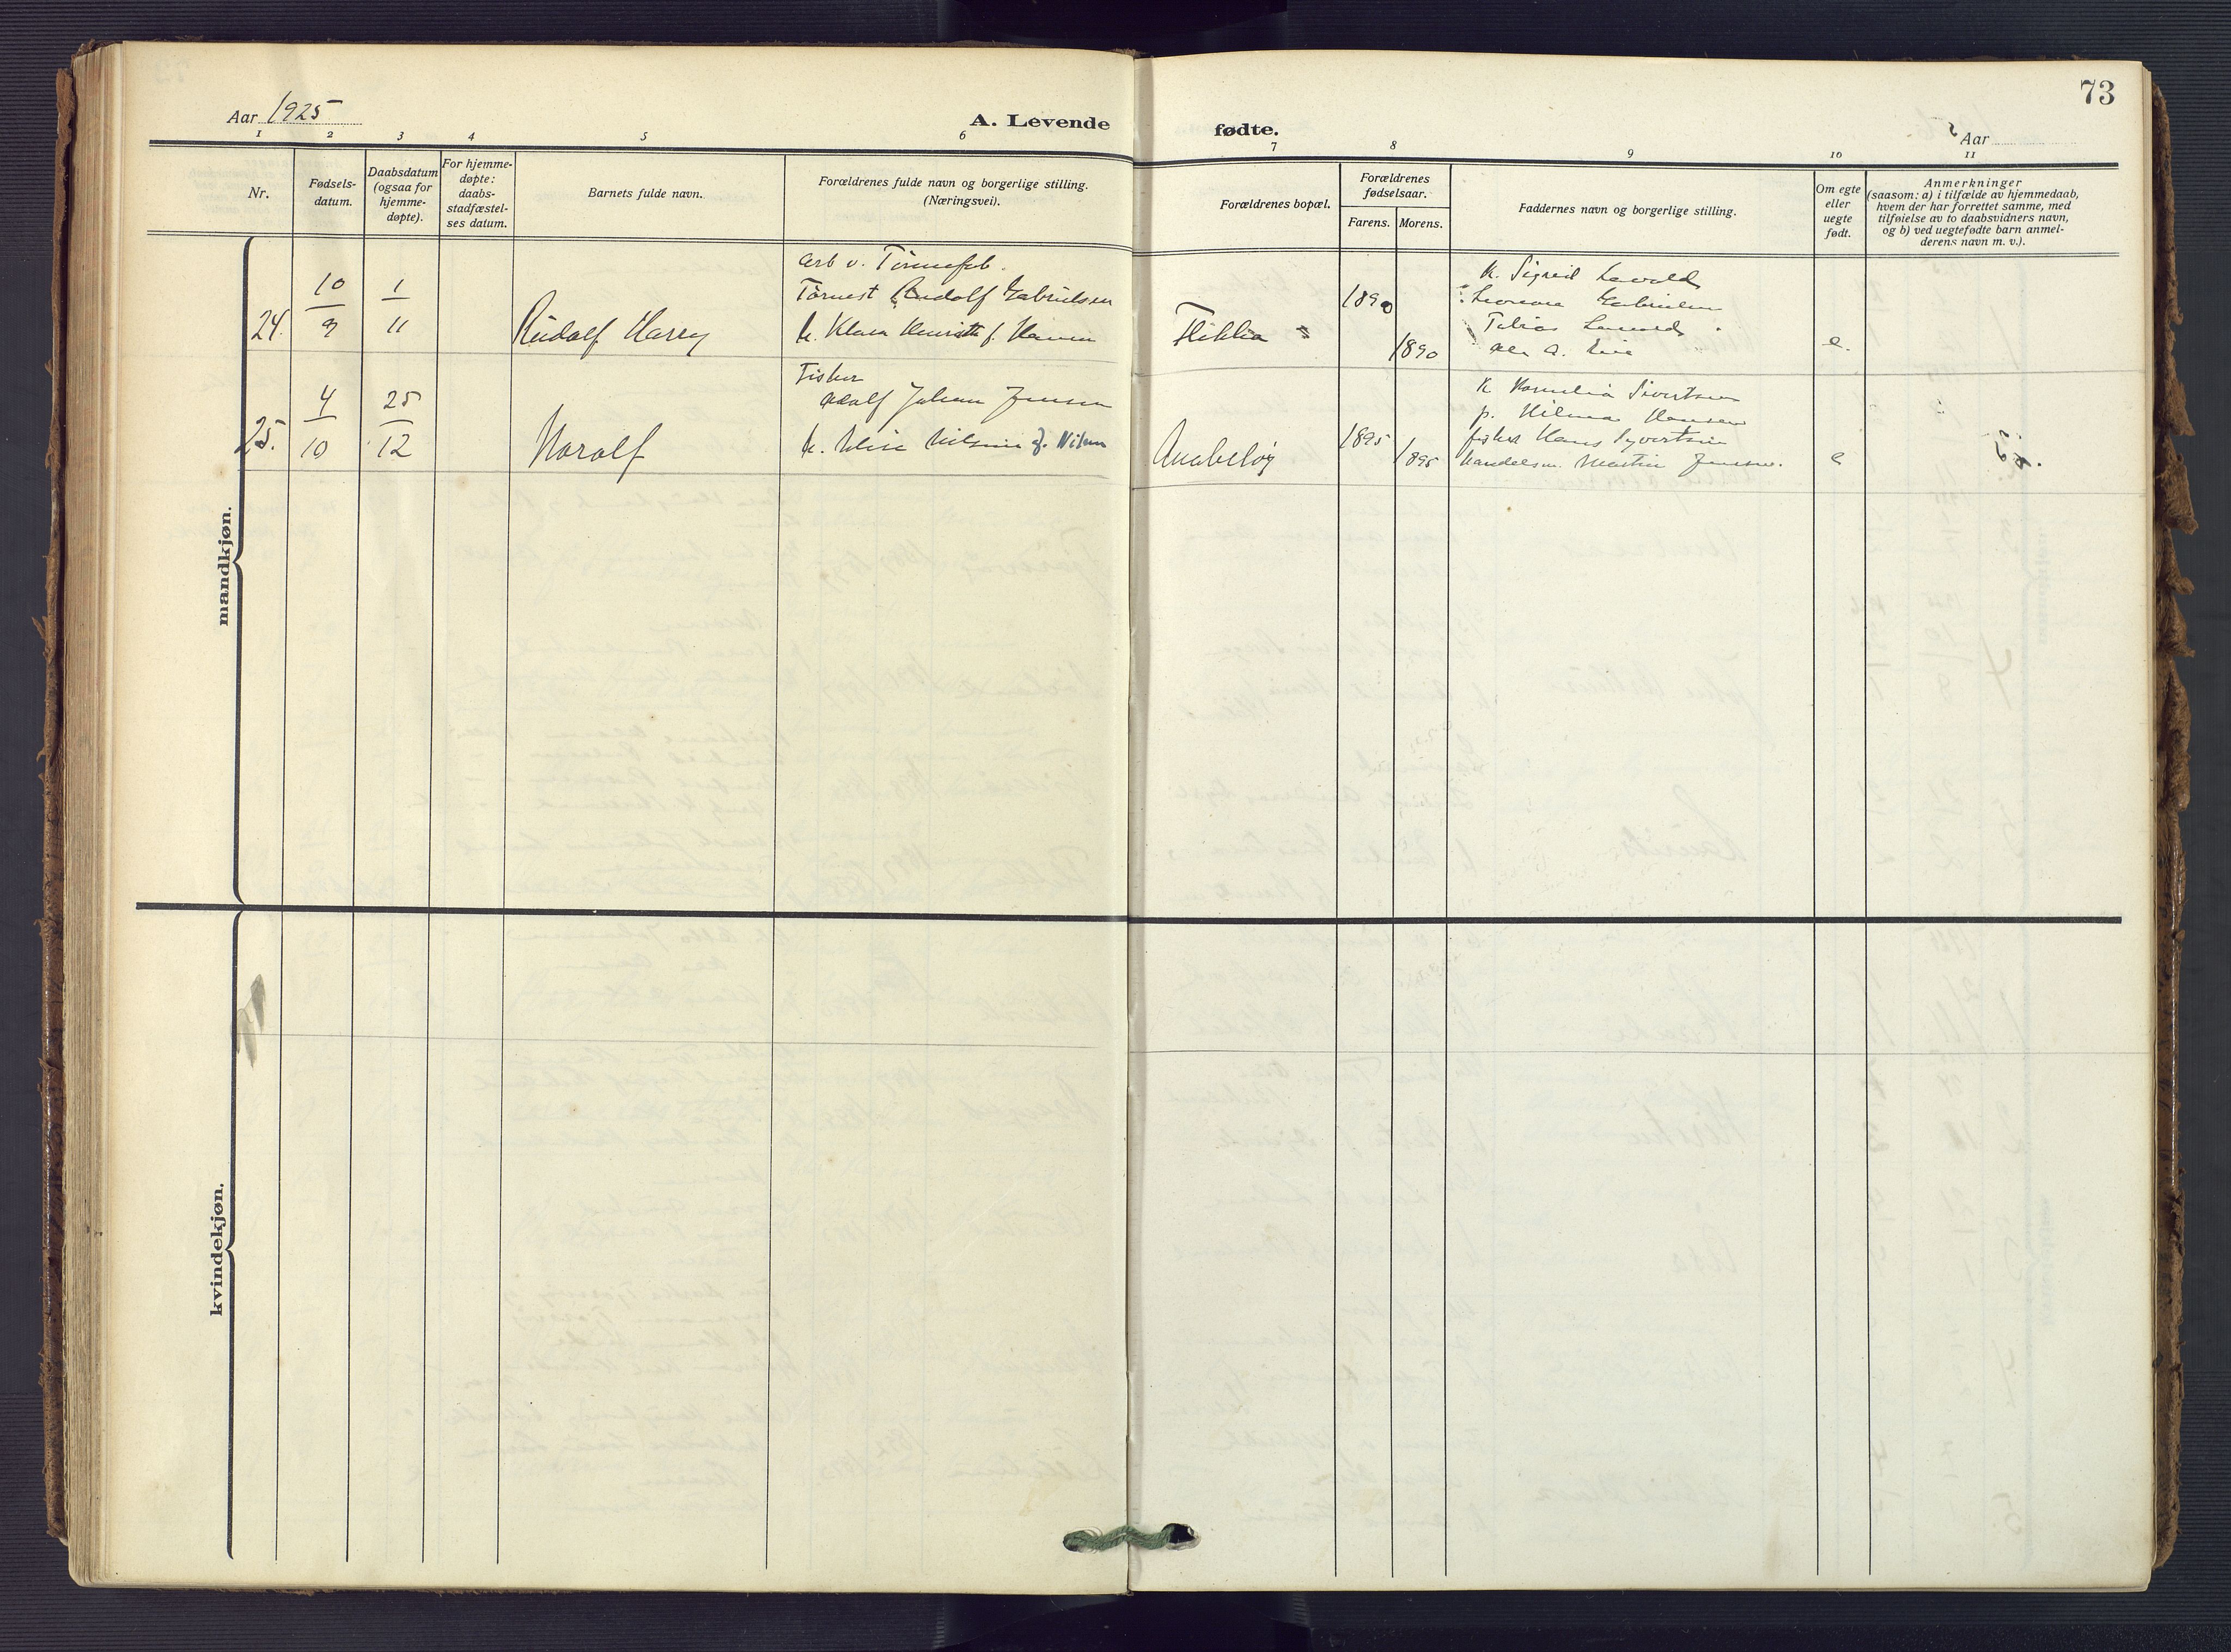 73
Aar 1925
A. Levende
fødte.
Aar
1 2 3 4 5 6 7 8 9 10 11
Nr.
Fødsels-
datum.
Daabsdatum
(ogsaa for
hjemme-
døpte).
For hjemme-
døpte:
daabs-
stadfæstel-
ses datum.
Barnets fulde navn.
Forældrenes fulde navn og borgerlige stilling.
(Næringsvei).
Forældrenes bopæl.
Forældrenes
fødselsaar.
Farens. Morens.
Faddernes navn og borgerlige stilling.
Om egte
eller
uegte
født.
Anmerkninger
(saasom: a) i tilfælde av hjemmedaab,
hvem der har forrettet samme, med
tilføielse av to daabsvidners navn,
og b) ved uegtefødte barn anmel-
derens navn m. v.).
mandkjøn.
24.
10
9
1
11
Rudolf Harry
Arb v. Tønnefab.
Rudolf Gabrielsen
h. Klara Henriette f. Hansen
Flikka
1890
1890
K. Sigreid
Gabrielsen
Tobias
e.
25.
4
10
25
12
Norolf
Fisker
Adolf Johan Jensen
h. f. Nilsen
Anabeløy
1895
1895
K Kornelia Sivertsen
p. Hilma Hansen
fisker Hans Syvertsen
handelsm. Martin Jensen.
e
kvindekjøn.